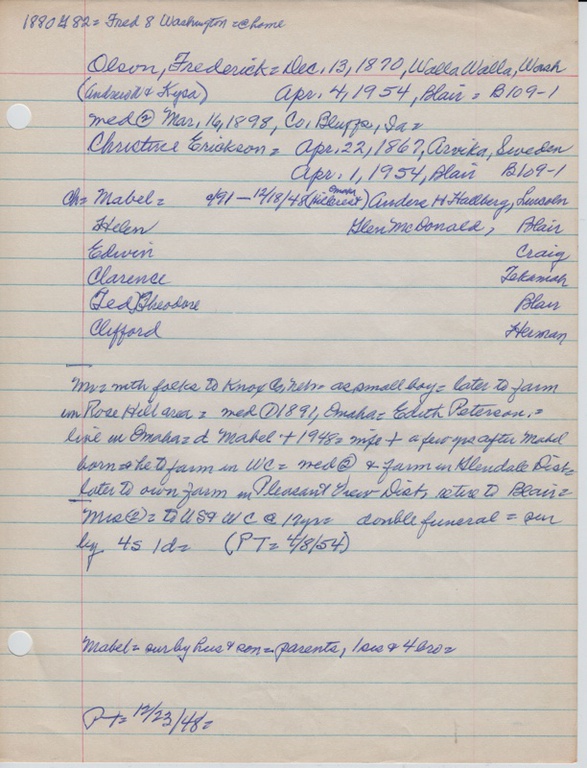 1880 #82= Fred 8 Washington =@home
Olson, Frederick= Dec. 13, 1870, Walla Walla, Wash
(Andrew & Kysa) Apr. 4, 1954, Blair = B109-1
med② Mar. 16, 1898, Co. Bluffs, Ia=
Christine Erickson = Apr. 22, 1867, Arvika, Sweden
Apr. 1, 1954, Blair B109-1
Omaha
ch= Mabel= 9/91 - 12/18/48 (Hillcrest) Anders H Hallberg, Lincoln
Helen Glen McDonald, Blair
Edwin Craig
Clarence Tekamah
(Ted) Theodore Blair
Clifford Herman
Mr= with folks to Knox Co, Neb= as small boy= later to farm
in Rose Hill area = med ① 1891, Omaha= Edith Peterson.=
live in Omaha= d Mabel + 1948= wife + a few yrs after Mabel
born= he to farm in WC= med② & farm in Glendale Dist=
later to own farm in Pleasant View Dist, retire to Blair=
Mrs②= to US & WC @ 17yr= double funeral = sur
by 4s 1d= (PT= 4/8/54)
Mabel= sur by hus & son= parents, 1 sis & 4 bro=
PT= 12/23/48=